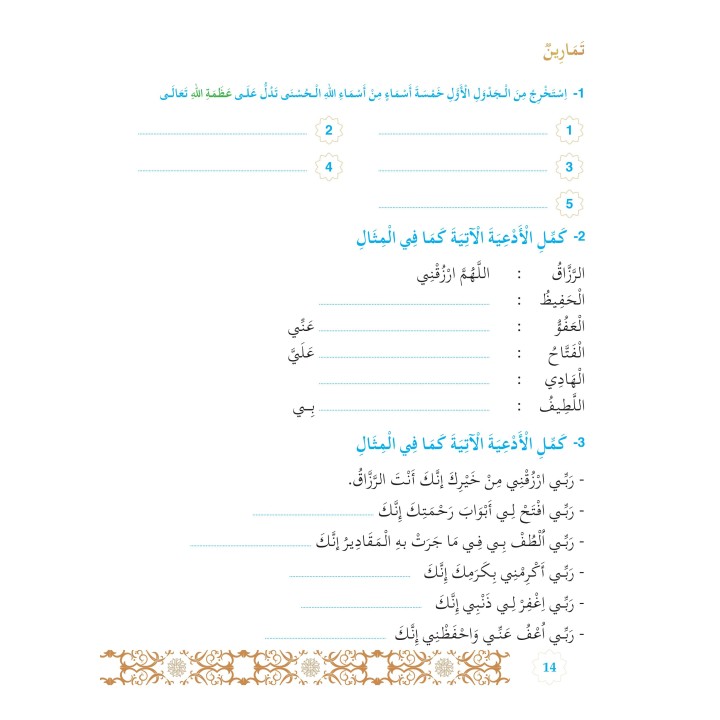 تَمَارِينٌ
1- اِسْتَخْرِجْ مِنَ الْـجَدْوَلِ الْأَوَّلِ خَمْسَةَ أَسْمَاءٍ مِنْ أَسْمَاءِ اللهِ الْـحُسْنَى تَدُلُّ عَلَـى عَظَمَةِ اللهِ تَعَالَـى
1 2
3 4
5
2- كَمِّلِ الْأَدْعِيَةَ الْآتِيَةَ كَمَا فِي الْمِثَالِ
الرَّزَّاقُ : اللَّهُمَّ ارْزُقْنِي
الْحَفِيظُ :
الْعَفُوُّ : عَنِّي
الْفَتَّاحُ : عَلَيَّ
الْهَادِي :
اللَّطِيفُ : بِـي
3- كَمِّلِ الْأَدْعِيَةَ الْآتِيَةَ كَمَا فِي الْمِثَالِ
- رَبِّـي ارْزُقْنِي مِنْ خَيْرِكَ إنَّكَ أَنْتَ الرَّزَّاقُ.
- رَبِّـي افْتَحْ لِـي أَبْوَابَ رَحْمَتِكَ إِنَّكَ
- رَبِّـي اُلْطُفْ بِـي فِـي مَا جَرَتْ بهِ الْـمَقَادِيرُ إنَّكَ
- رَبِّـي أَكْرِمْنِي بِكَرَمِكَ إِنَّكَ
- رَبِّـي اِغْفِرْ لِـي ذَنْبِي إِنَّكَ
- رَبِّـي اُعْفُ عَنِّـي وَاحْفَظْنِي إِنَّكَ
14